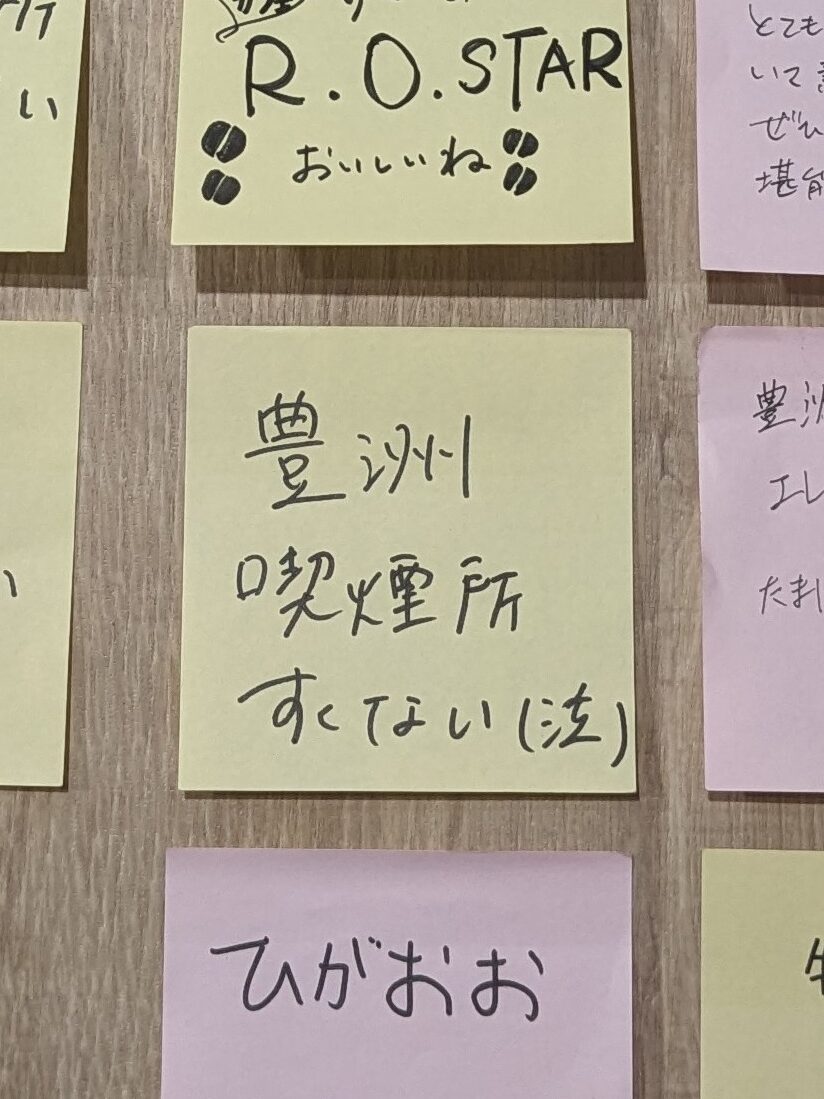 R.O.STAR
おいしいね
い
とても
いて
ぜひ
堪能
豊洲
喫煙所
すくない(泣)
豊洲
エレ
たまし
ひがおお